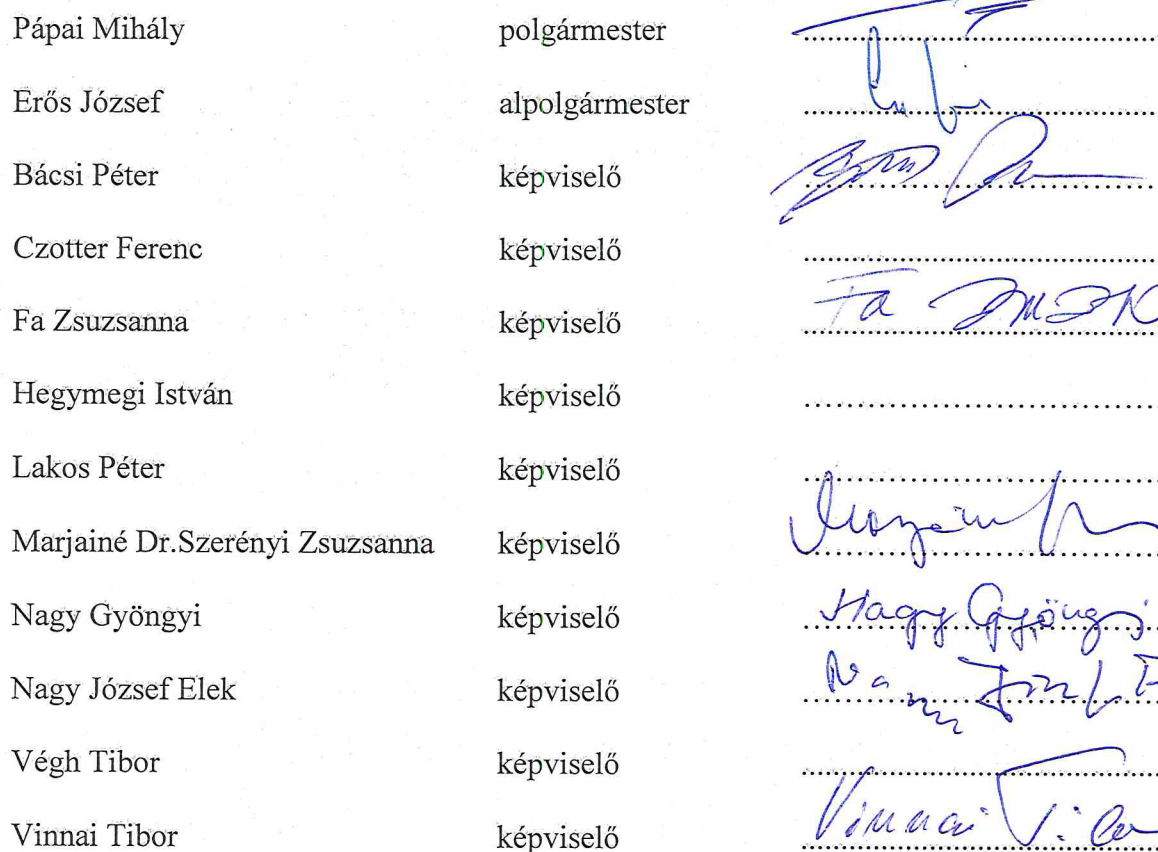 Pápai Mihály polgármester
Erős József alpolgármester
Bácsi Péter képviselő
Czotter Ferenc képviselő
Fa Zsuzsanna képviselő Fa
Hegymegi István képviselő
Lakos Péter képviselő
Marjainé Dr.Szerényi Zsuzsanna képviselő
Nagy Gyöngyi képviselő Nagy Gyöngyi
Nagy József Elek képviselő
Végh Tibor képviselő
Vinnai Tibor képviselő Vinnai Tibor